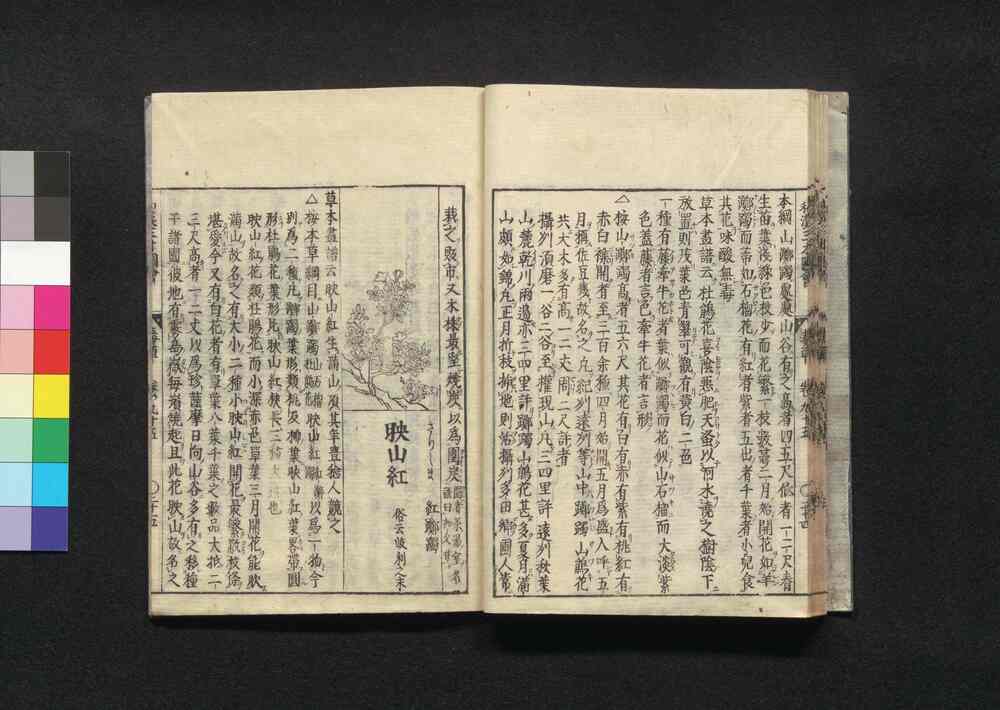 本綱山躑躅處處山谷有之高者四五尺低者一二尺春
生苗葉淺綠色枝少而花繁一枝數萼二月始開花如羊
躑躅而蒂如石榴花有紅者紫者五出者千葉者小兒食
其花味酸無毒
草木畫譜云杜鵑花喜陰惡肥天旱以河水澆之樹陰下
放置則茂葉色青翠可觀有黃白二色
一種有藤牽牛花者葉似躑躅而花似山石榴而大淡紫
色蓋藤者言色牽牛花者言形
△按山躑躅高者五六尺其花有白有赤有紫有桃紅有
赤白襍開者至三百余種四月始開五月爲盛人呼五
月
共大木多有高一二丈周二八許者
攝州須磨一谷二谷至權現山凡三四里許遠州秋葉
山麓乾川兩邊亦三四里許躑躅山鵑花甚多夏月滿
山頗如錦
栽之販市又木樣最堅燒炭以爲圍炭
映山紅
きりしま
紅躑躅
俗云岐利之末
草木畫譜云映山紅生滿山頂其年豐稔人競之
△按本草綱目山躑躅山石榴映山紅以爲一物今
別爲二種凡躑躅葉形類桃及柳葉映山紅葉畧帶圓
形杜鵑花葉形比映山紅狹長
映山紅花類杜鵑花而小深赤色單葉三月開花能映
滿山故名之有大小二種小映山紅開花最繁
堪愛今又有白花者有單葉八葉千葉之數品大抵二
三尺高者一二丈以爲珍薩摩日向山谷多有之移種
于諸國彼地有霧島嶽每燒起且此花映山故名之